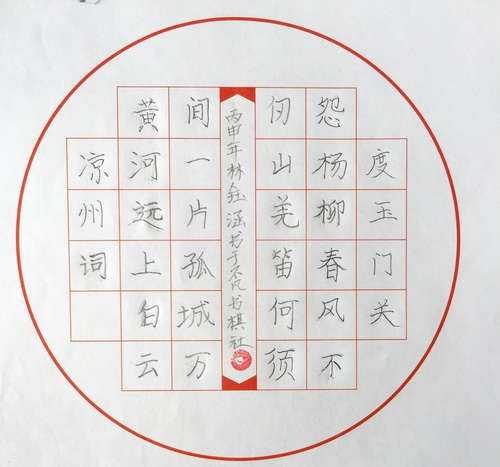 凉州词
黄河远上白云
间一片孤城万
丙申年林钰涵书于不凡书棋社
仞山羌笛何须
怨杨柳春风不
度玉门关